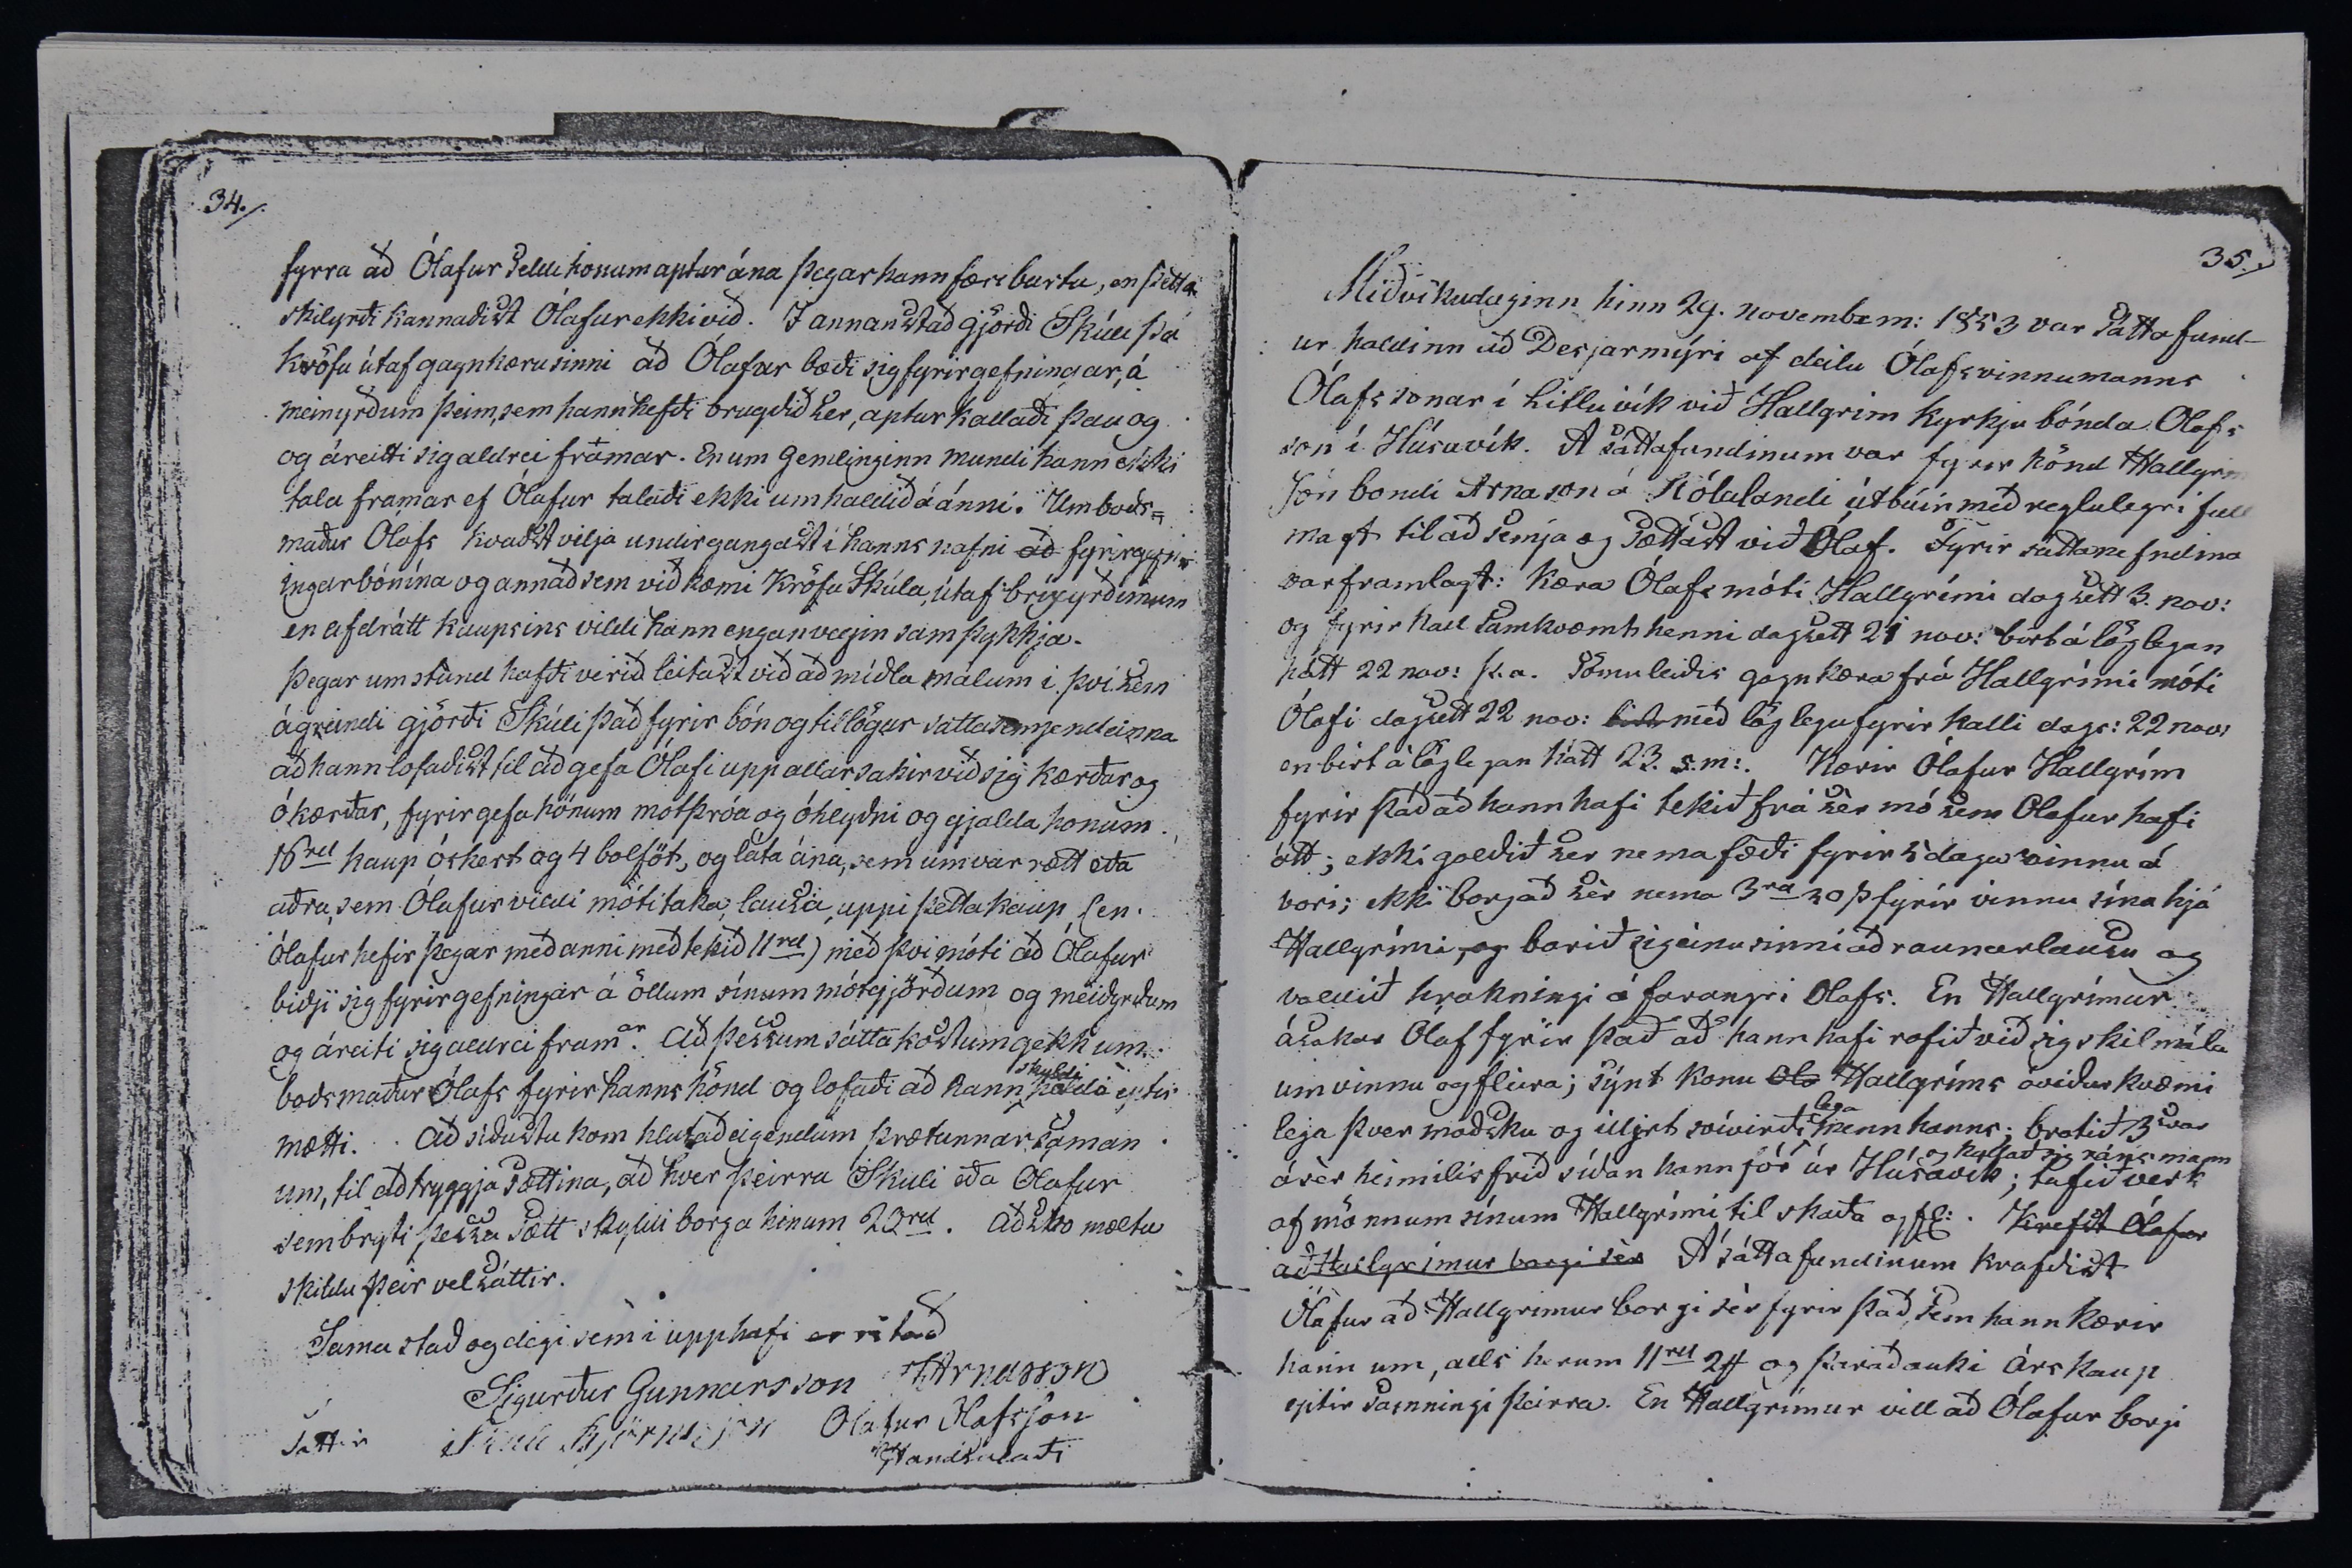 34./.
fyrra að Ólafur seldi honum aptur ána þegar hann færi burtu, en þetta
skilyrði kannaðist Ólafur ekki við. I annan stað gjörði Skúli þá
kröfu útaf gagnkæru sinni að Ólafur bæði sig fyrirgefningar, á
meinyrðum þeim, sem hann hefði brugðið ser, aptur kallaði þau og
og áreitti sig aldrei framar. En um gemlinginn mundi hann ekki
tala framar ef Ólafur talaði ekki um haldið á ánni. Umboðs=
maður Olafs kvaðst vilja undirgangast í hanns nafni að fyrirgefn
ingarbónina og annað sem við kæmi kröfu Skúla, útaf brigyrðunum
en afdrátt kaupsins vildi hann enganveginn samþykkja.
Þegar um stund hafði verið leitast við að miðla málum i því sem
ágreindi gjörði Skúli það fyrir bón og tillögur sattasemjendanna
að hann lofaðist til að gefa Ólafi upp allar sakir við sig kærðar og
ókærðar, fyrirgefa hönum mótþróa og óhlyðni og gjalda honum
16rd kaup óskert og 4 bolföt, og lata ána, sem um var rætt eða
aðra, sem Ólafur vildi móti taka, lausa, uppi þetta kaup (en
Ólafur hefir þegar með anni með tekið 11rd) með þvi móti að Ólafur
biðji sig fyrirgefningar á öllum sínum mótgjörðum og meiðyrðum
og áreiti sig aldrei framar. Að þessum sáttakostum gekk um-
boðsmaður Ólafs fyrir hanns hönd og lofaði að hann skyldi halda eptir
mætti. Að síðustu kom hlutaðeigendum þrætunnar saman
um, til að tryggja sættina, að hver þeirra Skuli eða Olafur
sem bryti þessa sætt skyldi borga hinum 20rd. Að svo mæltu
skildu þeir vel sáttir.
Sama stað og degi sem i upphafi er ritað
Sigurður Gunnarsson Arnason
Sáttir Skuli Björnsson Olafur Olafsson
Handsalaði
35./
Miðvikudaginn hinn 29. novembr m: 1853 var sáttafund-
ur haldinn að Desjarmýri af deilu Ólafs vinnumanns
Ólafssonar í Litluvík við Hallgrim kyrkjubónda Olafs
son í Húsavík. A sáttafundinum var fyrir hönd Hallgrims
Jón bondi Arnason á Hólalandi, útbúinn með reglulegri full
magt til að semja og sættast við Ólaf. Fyrir sáttanefndina
var framlagt: kæra Ólafs móti Hallgrími dagsett 3. nov:
og fyrirkall samkvæmt henni dagsett 21 nov: birt á löglegan
hátt 22 nov: þ.a. Sömuleiðis gagnkæra frá Hallgrími móti
Ólafi dagsett 22 nov: með löglegu fyrirkalli dags: 22 nov:
en birt á löglegan hátt 23. s.m:. Kærir Ólafur Hallgrím
fyrir það að hann hafi tekið frá sèr mó sem Olafur hafi
átt; ekki goldið ser nema fæði fyrir 5 daga vinnu á
vori; ekki borgað sèr nema 3rd 20 þ fyrir vinnu sína hjá
Hallgrími, og barið sig einusinni að raunarlausu og
valdið hrakningi á farangri Olafs. En Hallgrímur
ásakar Ólaf fyrir það að hann hafi rofið við sig skilmála
um vinnu og fleira; sýnt konu Ola Hallgríms óviðurkvæmi
lega þvermóðsku og illyrt sívirðilega menn hanns; brotið 3svar
á sèr heimilisfrið síðan hann fór úr Húsavík; og kallað sig ránsmann tafið verk
af mönnum sínum Hallgrími til skaða og fl:. Krefst Ólafur
að Hallgrímur borgi sèr A sáttafundinum krafðist
Ólafur að Hallgrimur borgi sèr fyrir það, sem hann kærir
hann um, alls honum 11rd 24 og þaraðauki árskaup
eptir samningi þeirra. En Hallgrímur vill að Ólafur borgi